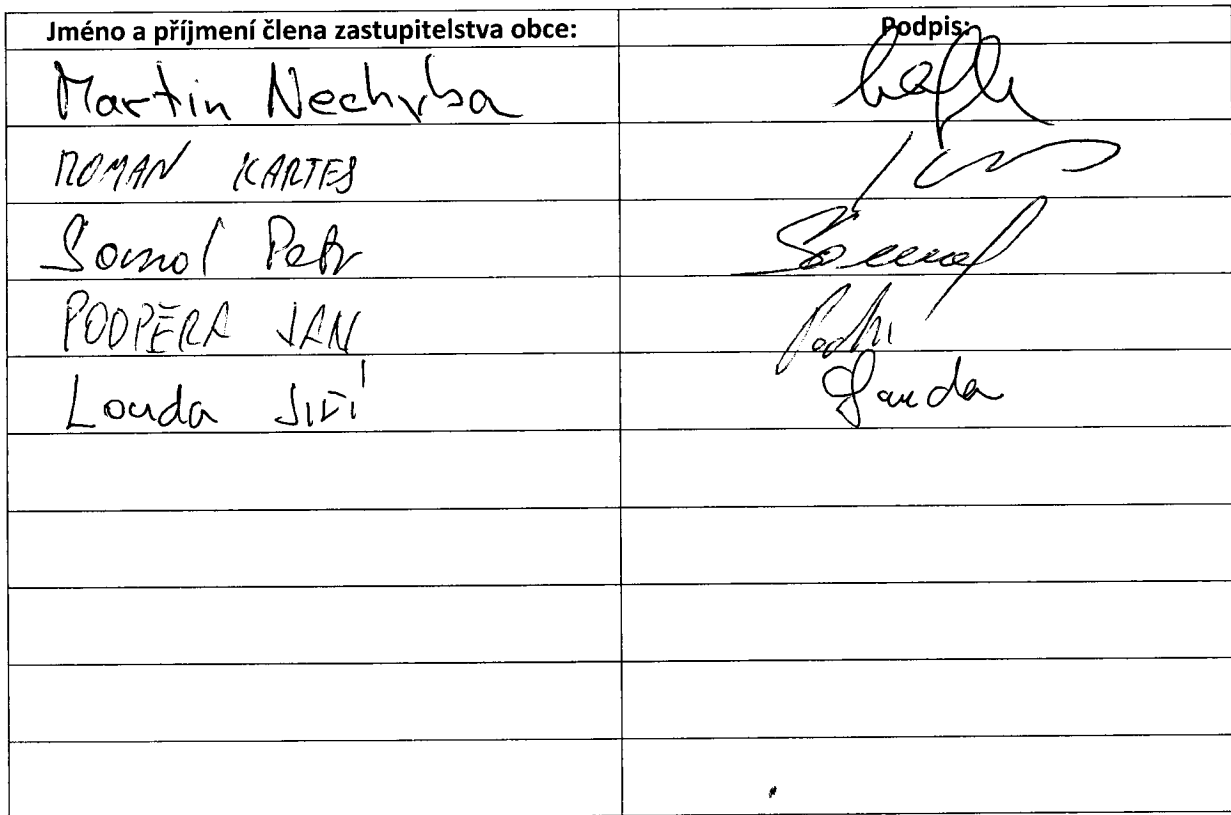 Jméno a příjmení člena zastupitelstva obce: Podpis:
Martin Nechyba
ROMAN KARTES
Somol Petr Somol
PODPĚRA JAN
Louda Jiří Louda